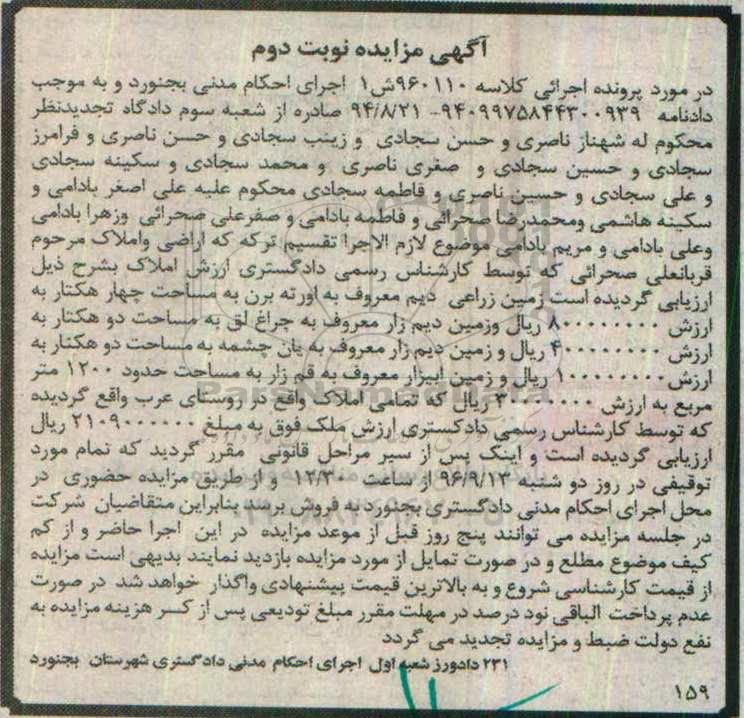 آگهی مزایده نوبت دوم
در مورد پرونده اجرائی کلاسه ۹۶۰۱۱۰ش۱ اجرای احکام مدنی بجنورد و به موجب
دادنامه ۹۴۰۹۹۷۵۸۴۴۳۰۰۹۳۹- ۹۴/۸/۲۱ صادره از شعبه سوم دادگاه تجدیدنظر
محکوم له شهناز ناصری و حسن سجادی و زینب سجادی و حسن ناصری و فرامرز
سجادی و حسین سجادی و صغری ناصری و محمد سجادی و سکینه سجادی
و علی سجادی و حسین ناصری و فاطمه سجادی محکوم علیه علی اصغر بادامی و
سکینه هاشمی ومحمدرضا صحرائی و فاطمه بادامی و صفرعلی صحرائی وزهرا بادامی
وعلی بادامی و مریم بادامی موضوع لازم الاجرا تقسیم ترکه که اراضی واملاک مرحوم
قربانعلی صحرائی که توسط کارشناس رسمی دادگستری ارزش املاک بشرح ذیل
ارزیابی گردیده است زمین زراعی دیم معروف به اورته برن به مساحت چهار هکتار به
ارزش ۸۰۰۰۰۰۰۰۰ ریال وزمین دیم زار معروف به چراغ لق به مساحت دو هکتار به
ارزش ۴۰۰۰۰۰۰۰۰ ریال و زمین دیم زار معروف به یان چشمه به مساحت دو هکتار به
ارزش ۱۰۰۰۰۰۰۰۰ ریال و زمین ابیزار معروف به قم زار به مساحت حدود ۱۲۰۰ متر
مربع به ارزش ۳۰۰۰۰۰۰۰ ریال که تمامی املاک واقع در روستای عرب واقع گردیده
که توسط کارشناس رسمی دادگستری ارزش ملک فوق به مبلغ ۲۱۰۹۰۰۰۰۰۰ ریال
ارزیابی گردیده است و اینک پس از سیر مراحل قانونی مقرر گردید که تمام مورد
توقیفی در روز دو شنبه ۹۶/۹/۱۳ از ساعت ۱۲/۳۰ و از طریق مزایده حضوری در
محل اجرای احکام مدنی دادگستری بجنورد به فروش برسد بنابراین متقاضیان شرکت
در جلسه مزایده می توانند پنج روز قبل از موعد مزایده در این اجرا حاضر و از کم
کیف موضوع مطلع و در صورت تمایل از مورد مزایده بازدید نمایند بدیهی است مزایده
از قیمت کارشناسی شروع و به بالاترین قیمت پیشنهادی واگذار خواهد شد در صورت
عدم پرداخت الباقی نود درصد در مهلت مقرر مبلغ تودیعی پس از کسر هزینه مزایده به
نفع دولت ضبط و مزایده تجدید می گردد
۲۳۱ دادورز شعبه اول اجرای احکام مدنی دادگستری شهرستان بجنورد
۱۵۹